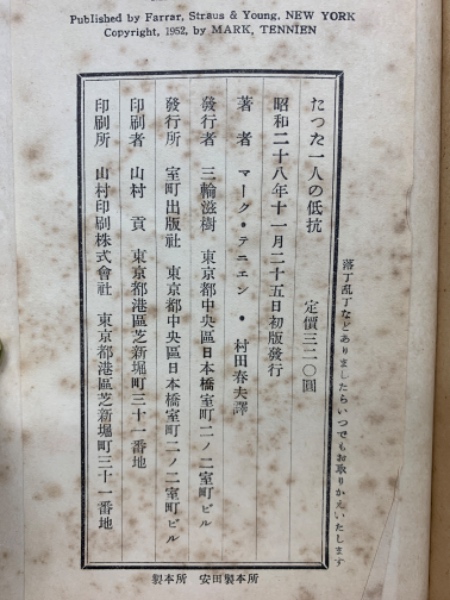 Published by Farrar, Straus & Young, NEW YORK
Copyright, 1952, by MARK, TENNIEN
落丁乱丁などありましたらいつでもお取りかえいたします
たった一人の低抗 定價三二〇圓
昭和二十八年十一月二十五日初版發行
著者 マーク・テニエン ● 村田春夫譯
發行者 三輪滋樹 東京都中央區日本橋室町二ノ二室町ビル
發行所 室町出版社 東京都中央區日本橋室町二ノ二室町ビル
印刷者 山村貢 東京都港區芝新堀町三十一番地
印刷所 山村印刷株式會社 東京都港區芝新堀町三十一番地
製本所 安田製本所